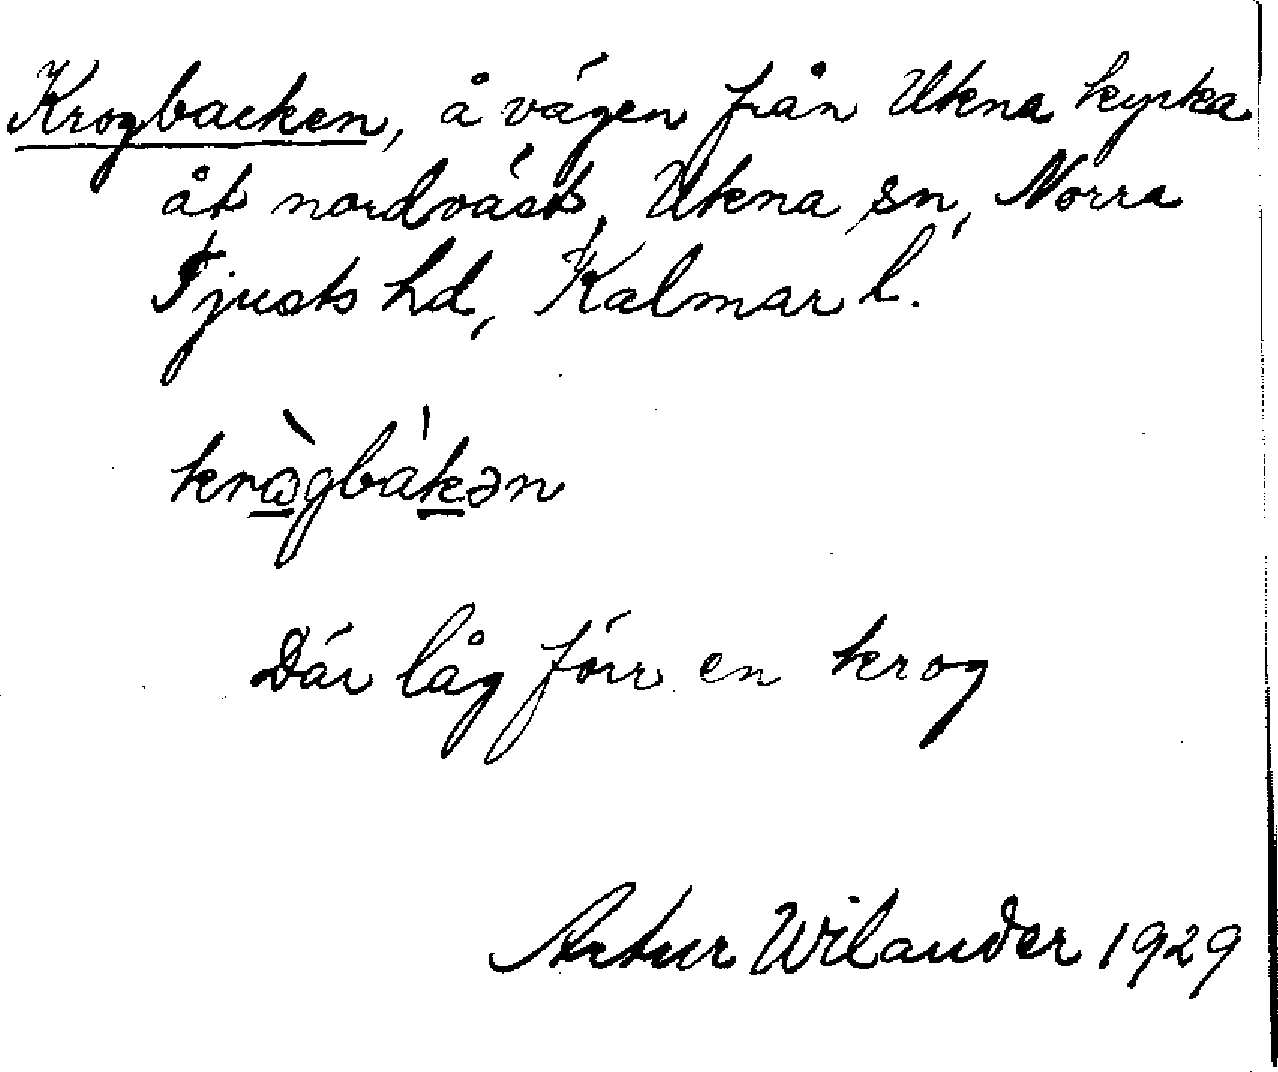 Krogbacken, å vägen från Ukna kyrka
åt nordväst, Ukna sn, Norra
Tjusts hd, Kalmar l.
kràgbákən
Där låg förr en krog
Artur Wilander 1929